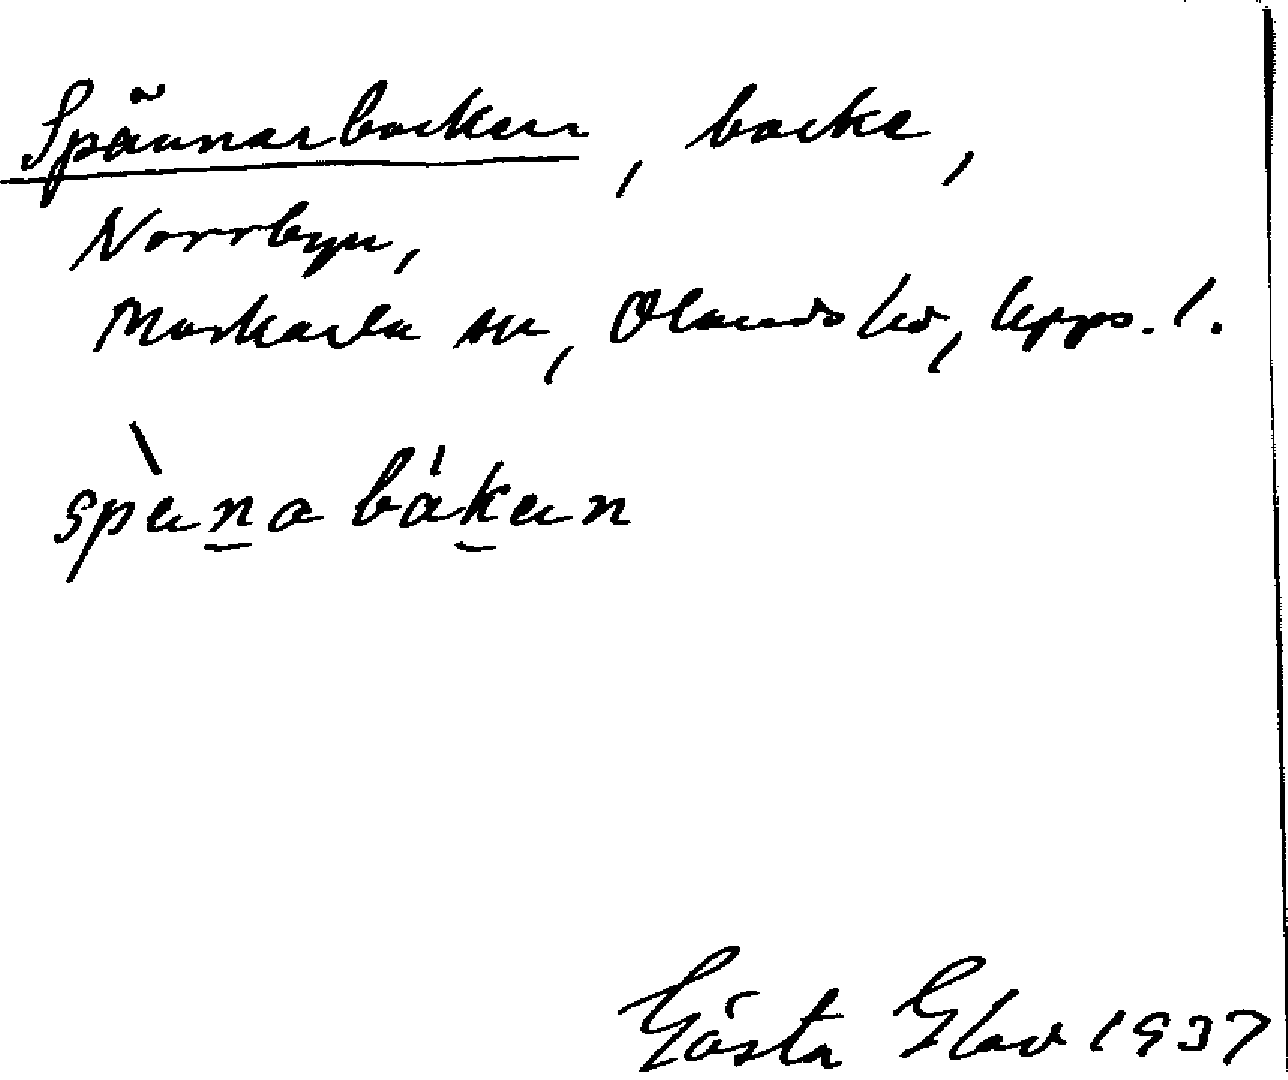 Spännarbacken, backe,
Norrbyn,
Morkarla sn, Olands hd, Upps. l.
späna bákan
Gösta Glav 1937